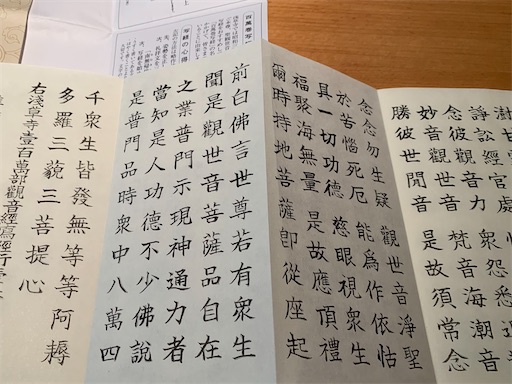 百萬巻写
写経の心得
諍訟經官處
念彼觀音力 衆怨悉
妙音觀世音 梵音海潮音
勝彼世聞音 是故須常念
念念勿生疑 觀世音淨聖
於苦惱死厄 能爲作依怙
具一切功德 慈眼視衆生
福聚海無量 是故應頂禮
爾時持地菩薩卽從座起
前白佛言世尊若有衆生
聞是觀世音菩薩品自在
之業普門示現神通力者
當知是人功德不少佛說
是普門品時衆中八萬四
千衆生皆發無等等阿耨
多羅三藐三菩提心
右淺草寺壹百萬部觀音經寫經行